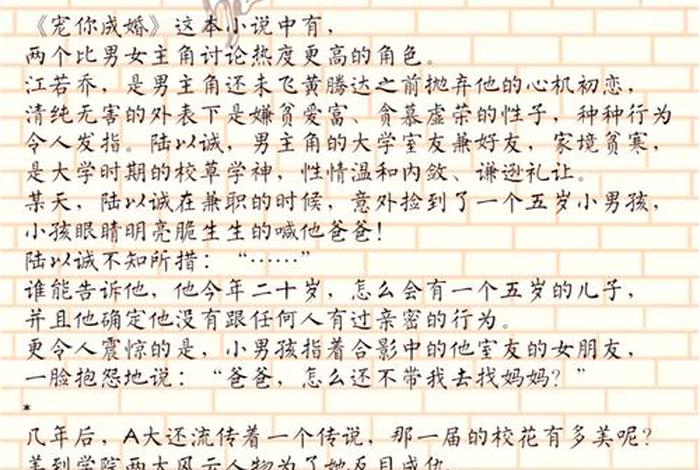 《宠你成婚》这本小说中有，
两个比男女主角讨论热度更高的角色。
江若乔，是男主角还未飞黄腾达之前抛弃他的心机初恋，
清纯无害的外表下是嫌贫爱富、贪慕虚荣的性子，种种行为
令人发指。陆以诚，男主角的大学室友兼好友，家境贫寒，
是大学时期的校草学神，性情温和内敛、谦逊礼让。
某天，陆以诚在兼职的时候，意外捡到了一个五岁小男孩，
小孩眼睛明亮脆生生的喊他爸爸！
陆以诚不知所措：“……”
谁能告诉他，他今年二十岁，怎么会有一个五岁的儿子，
并且他确定他没有跟任何人有过亲密的行为。
更令人震惊的是，小男孩指着合影中的他室友的女朋友，
一脸抱怨地说：“爸爸，怎么还不带我去找妈妈？”
*
几年后，A大还流传着一个传说，那一届的校花有多美呢？
美到学院两大风云人物为了她反目成仇